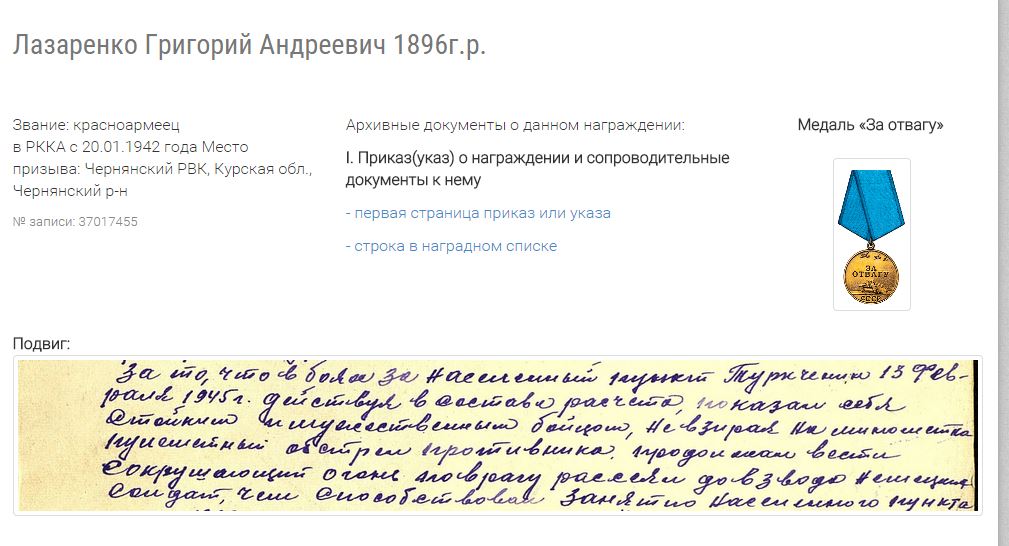 Лазаренко Григорий Андреевич 1896г.р.
Звание: красноармеец
в РККА с 20.01.1942 года Место
призыва: Чернянский РВК, Курская обл.,
Чернянский р-н
№ записи: 37017455
Архивные документы о данном награждении:
I. Приказ(указ) о награждении и сопроводительные
документы к нему
- первая страница приказ или указа
- строка в наградном списке
Медаль «За отвагу»
ЗА
ОТВАГУ
СССР
Подвиг:
За то, что в боях за населенный пункт 13 Фев-
раля 1945г. действуя в составе расчета, показал себя
стойким и мужественным бойцом, невзирая на минометно
пулеметный обстрел противника, продолжал вести
сокрушающий огонь по врагу рассеял до взвода немецких
солдат, чем способствовал занятию населенного пункта